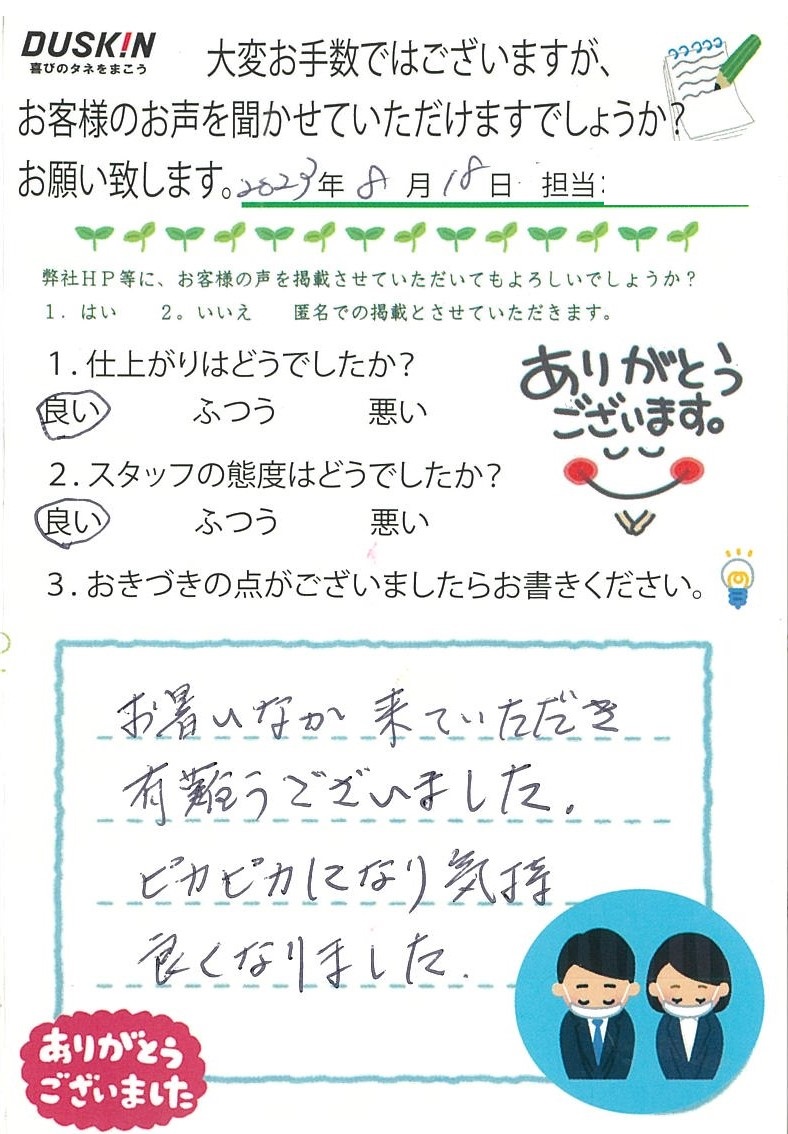 DUSK!N
喜びのタネをまこう
大変お手数ではございますが、
お客様のお声を聞かせていただけますでしょうか?
お願い致します。2023年 8月18日 担当:
弊社HP等に、お客様の声を掲載させていただいてもよろしいでしょうか?
1. はい 2。いいえ 匿名での掲載とさせていただきます。
1.仕上がりはどうでしたか?
良い ふつう 悪い
ありがとう
ございます。
2.スタッフの態度はどうでしたか?
良い ふつう 悪い
3.おきづきの点がございましたらお書きください。
お暑いなか 来ていただき
有難うございました.
ピカピカになり気持
良くなりました.
ありがとう
ございました